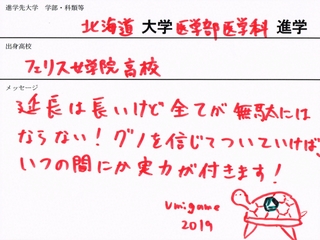 進学先大学 学部・科類等
北海道 大学 医学部医学科 進学
出身高校
フェリス女学院 高校
メッセージ
延長は長いけど全てが無駄には
ならない！グノを信じてついていけば、
いつの間にか実力が付きます！
umigame
2019